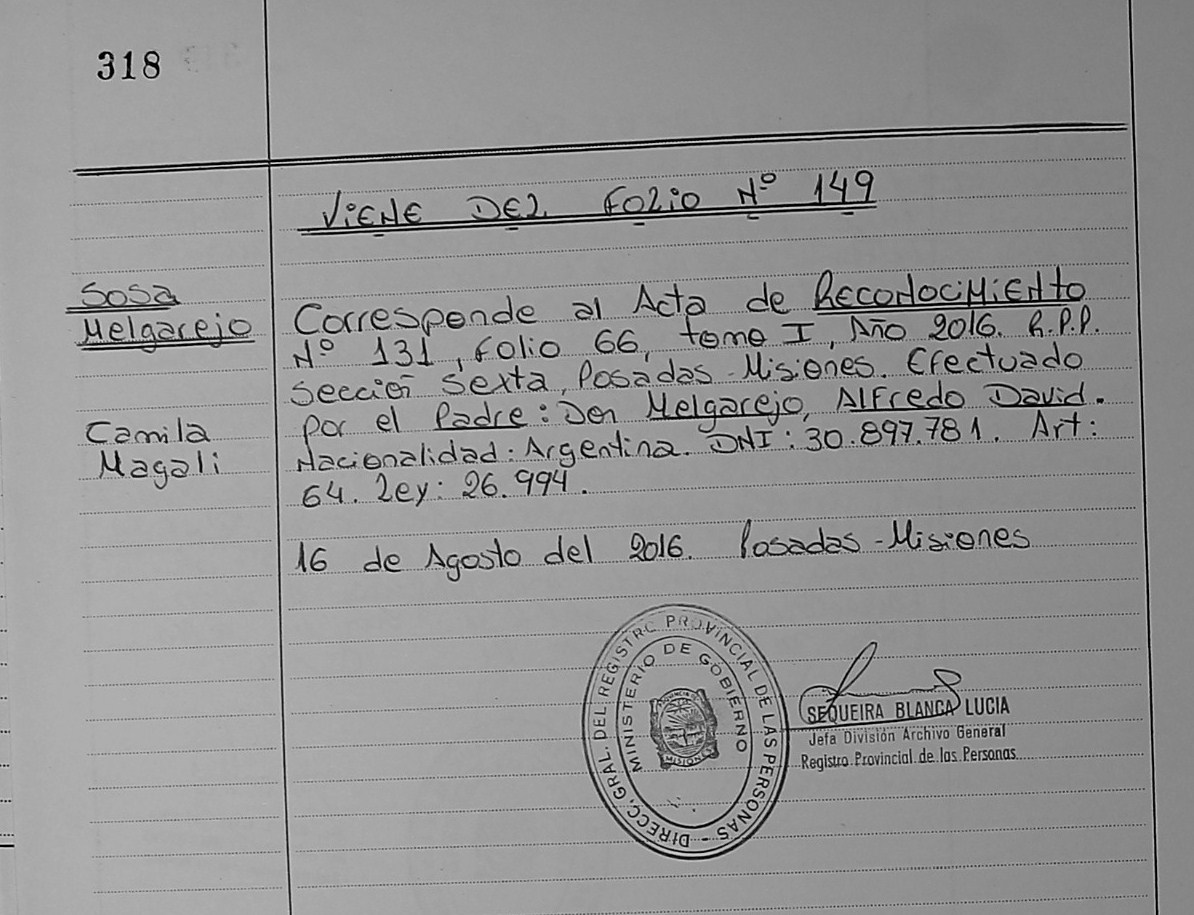 318
VIENE DEL FOLIO Nº 149
Sosa
Melgarejo
Camila
Magali
Corresponde al Acta de Reconocimiento
Nº 131, Folio 66, tomo I, Año 2016. R.P.P.
Sección Sexta, Posadas-Misiones. Efectuado
por el Padre: Don Melgarejo, Alfredo David.
Nacionalidad: Argentina. DNI: 30.897.781. Art:
64. Ley: 26.994.
16 de Agosto del 2016. Posadas-Misiones
DIRECC. GRAL. DEL REGISTRO PROVINCIAL DE LAS PERSONAS -
MINISTERIO DE GOBIERNO
MISIONES
SEQUEIRA BLANCA LUCIA
Jefa División Archivo General
Registro Provincial de las Personas